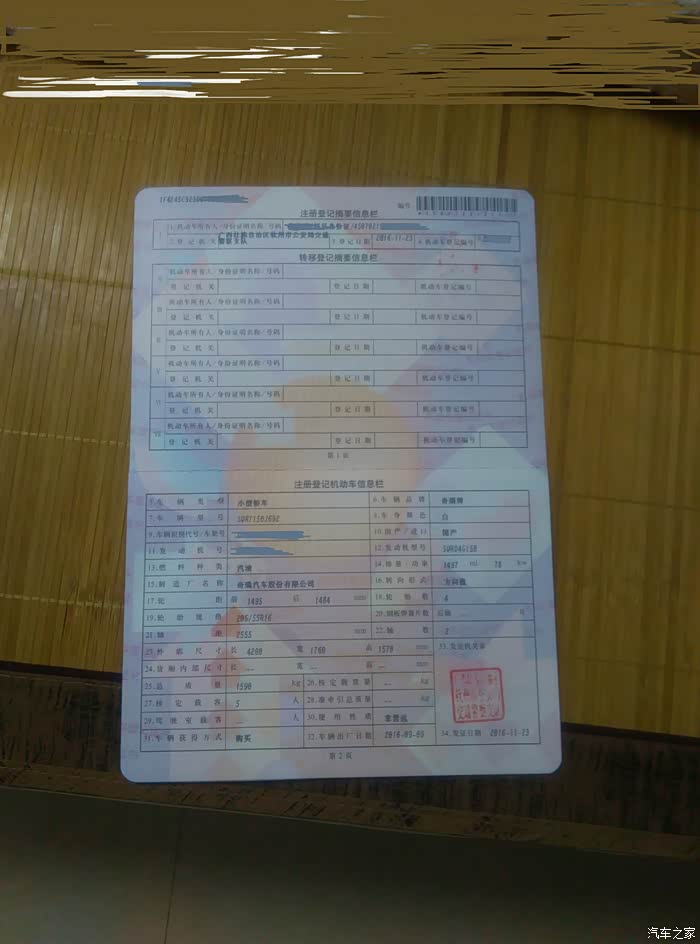 编号:
注册登记摘要信息栏
1.机动车所有人/身份证明名称/号码 身份证/450702
2.登记机关 广西壮族自治区钦州市公安局交通警察支队 3.登记日期 2016-11-23 4.机动车登记编号
转移登记摘要信息栏
机动车所有人/身份证明名称/号码
登记机关 登记日期 机动车登记编号
机动车所有人/身份证明名称/号码
登记机关 登记日期 机动车登记编号
机动车所有人/身份证明名称/号码
登记机关 登记日期 机动车登记编号
V 机动车所有人/身份证明名称/号码
登记机关 登记日期 机动车登记编号
VI 机动车所有人/身份证明名称/号码
登记机关 登记日期 机动车登记编号
VII 机动车所有人/身份证明名称/号码
登记机关 登记日期 机动车登记编号
第1页
注册登记机动车信息栏
5.车辆类型 小型轿车 6.车辆品牌 奇瑞牌
7.车辆型号 8.车身颜色 白
9.车辆识别代号/车架号 10.国产/进口 国产
11.发动机号 12.发动机型号 SQRD4G15B
13.燃料种类 汽油 14.排量/功率 1497 ml 78 kw
15.制造厂名称 奇瑞汽车股份有限公司 16.转向形式 方向盘
17.轮距 前 1495 后 1484 mm 18.轮胎数 4
19.轮胎规格 205/55R16 20.钢板弹簧片数 后轴 -- 片
21.轴距 2555 mm 22.轴数 2
23.外廓尺寸 长 4200 宽 1760 高 1570 mm 33.发证机关章
24.货厢内部尺寸 长 -- 宽 -- 高 -- mm
25.总质量 1590 kg 26.核定载质量 -- kg
27.核定载客 5 人 28.准牵引总质量 -- kg
29.驾驶室载客 -- 人 30.使用性质 非营运
31.车辆获得方式 购买 32.车辆出厂日期 2016-09-09 34.发证日期 2016-11-23
第2页
汽车之家